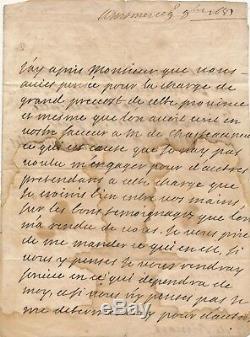 J'ay apris Monsieur que vous
aviés pensé pour la charge de
grand prevost de cette province
et mesme que l'on avoit écrit en
vostre faveur a M. de Chasteauneuf
ce qui est cause que Je n'ay pas
voulu m'engager pour d'autres
pretendans a cette charge que
Je croirois bien entre vos mains
sur les bons temoignages que l'on
m'a rendu de vous. Je vous prie
de me mander ce qui en est, si
vous y pensés Je vous rendray
service en ce qui dependra de
moy, et si vous n'y pensés pas Je
me determineray pour d'autres